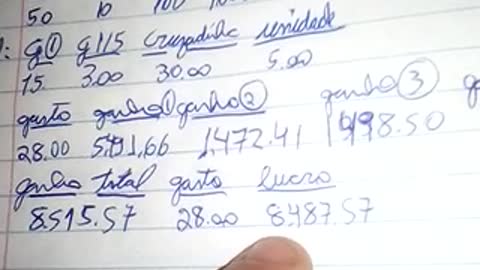 50 10 100
g① g115 cruzadinha unidade
15. 3.00 30.00 5.00
gasto ganho① ganho② ganho③ g
28.00 5.111,66 1.472.41 1.998.50
ganho total gasto lucro
8.515.57 28.00 8.487.57